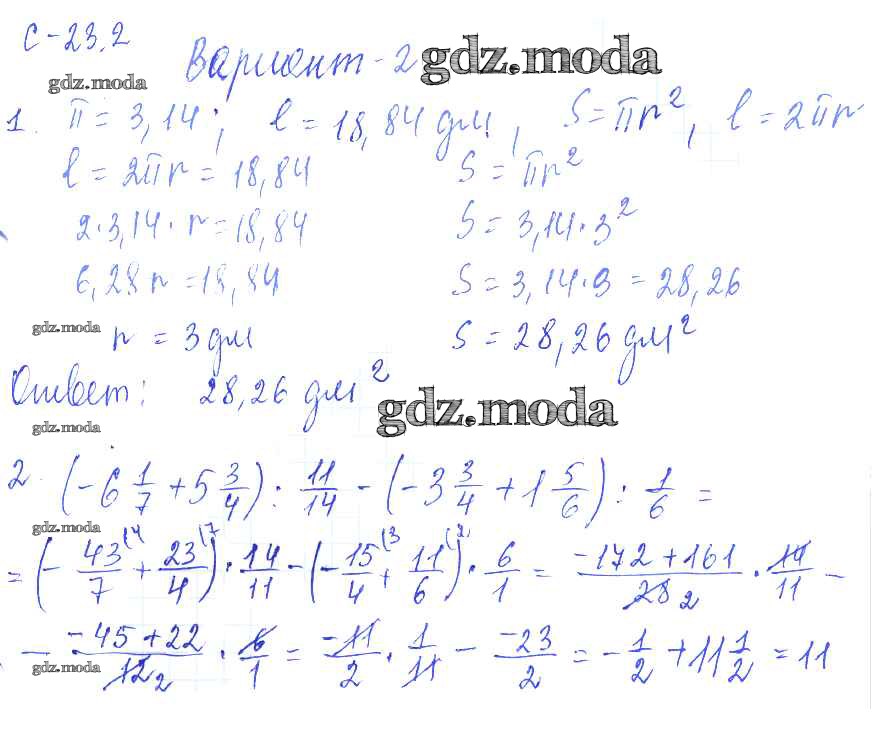 С-23.2
Вариант-2 gdz.moda
gdz.moda
1. π = 3,14; l = 18,84 дм, S = πr², l = 2πr
l = 2πr = 18,84 S = πr²
2·3,14·r = 18,84 S = 3,14·3²
6,28r = 18,84 S = 3,14·9 = 28,26
gdz.moda r = 3 дм S = 28,26 дм²
Ответ: 28,26 дм²
gdz.moda gdz.moda
2. (-6 1/7 + 5 3/4) : 11/14 - (-3 3/4 + 1 5/6) : 1/6 =
gdz.moda
= (- 43/7 (4 + 23/4 (7) · 14/11 - (- 15/4 (3 + 11/6 (2) · 6/1 = -172 + 161/28 2 · 14/11 -
- -45 + 22/12 2 · 6/1 = -11/2 · 1/11 - -23/2 = - 1/2 + 11 1/2 = 11
gdz.moda